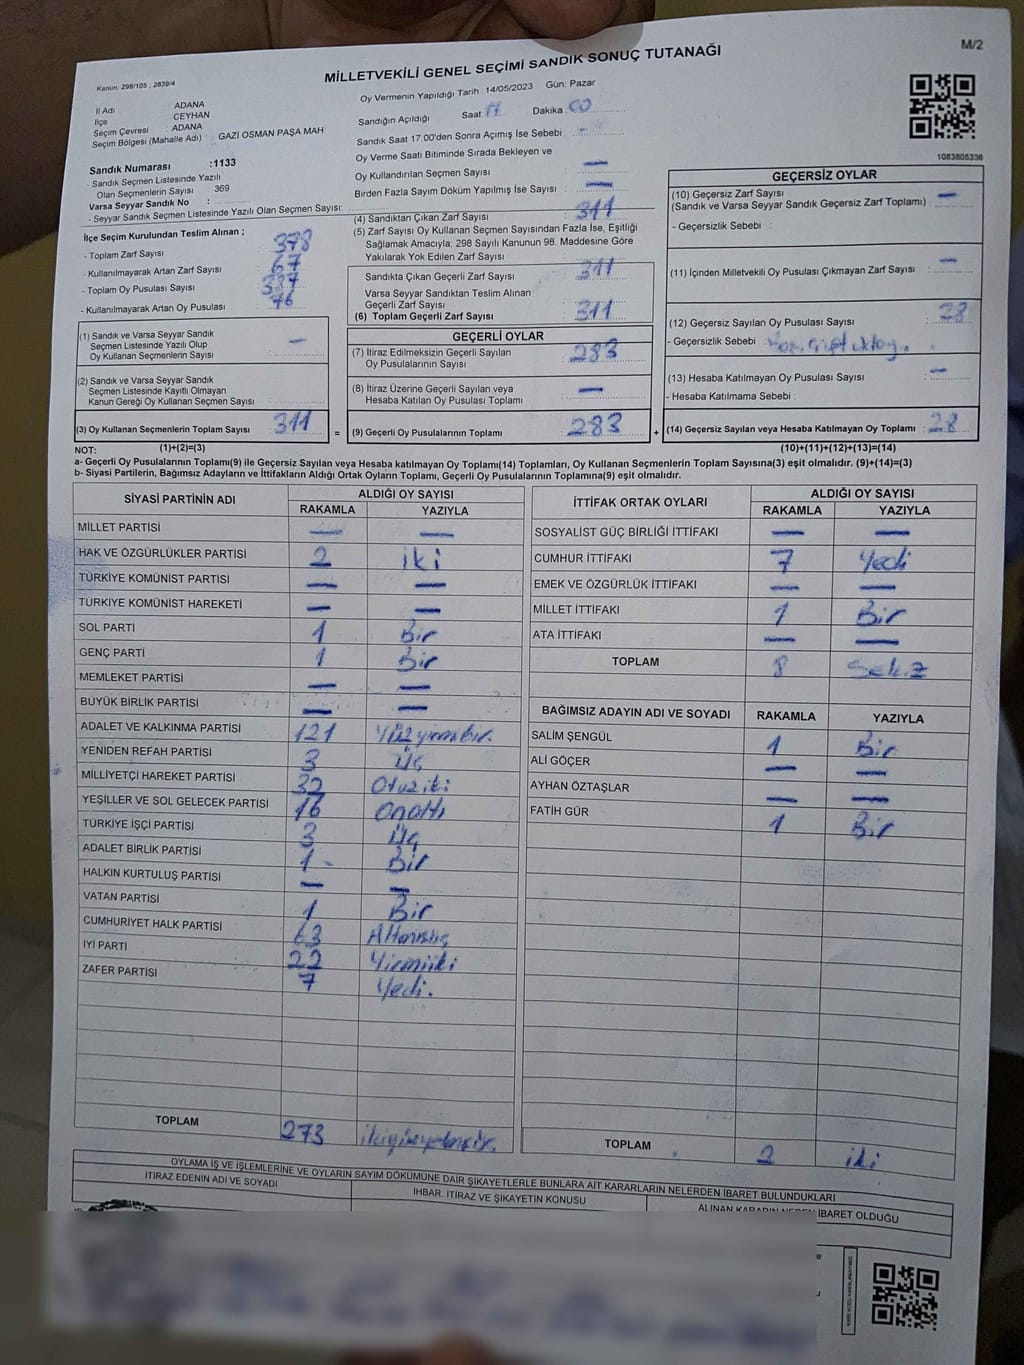 M/2
MİLLETVEKİLİ GENEL SEÇİMİ SANDIK SONUÇ TUTANAĞI
Kanun: 298/105 , 2839/4
İl Adı : ADANA
İlçe CEYHAN
Seçim Çevresi ADANA
Seçim Bölgesi (Mahalle Adı) : GAZİ OSMAN PAŞA MAH
Sandık Numarası :1133
- Sandık Seçmen Listesinde Yazılı
Olan Seçmenlerin Sayısı : 369
Varsa Seyyar Sandık No :
- Seyyar Sandık Seçmen Listesinde Yazılı Olan Seçmen Sayısı:
Oy Vermenin Yapıldığı Tarih : 14/05/2023 Gün: Pazar
Sandığın Açıldığı Saat 17 Dakika 00
Sandık Saat 17:00'den Sonra Açımış İse Sebebi : -
Oy Verme Saati Bitiminde Sırada Bekleyen ve
Oy Kullandırılan Seçmen Sayısı : —
Birden Fazla Sayım Döküm Yapılmış İse Sayısı : —
1083805336
İlçe Seçim Kurulundan Teslim Alınan ;
- Toplam Zarf Sayısı : 378
- Kullanılmayarak Artan Zarf Sayısı : 67
- Toplam Oy Pusulası Sayısı :
- Kullanılmayarak Artan Oy Pusulası : 76
(1) Sandık ve Varsa Seyyar Sandık
Seçmen Listesinde Yazılı Olup
Oy Kullanan Seçmenlerin Sayısı : —
(2) Sandık ve Varsa Seyyar Sandık
Seçmen Listesinde Kayıtlı Olmayan
Kanun Gereği Oy Kullanan Seçmen Sayısı :
(3) Oy Kullanan Seçmenlerin Toplam Sayısı : 311
(1)+(2)=(3)
(4) Sandıktan Çıkan Zarf Sayısı : 311
(5) Zarf Sayısı Oy Kullanan Seçmen Sayısından Fazla İse, Eşitliği
Sağlamak Amacıyla, 298 Sayılı Kanunun 98. Maddesine Göre
Yakılarak Yok Edilen Zarf Sayısı :
Sandıkta Çıkan Geçerli Zarf Sayısı : 311
Varsa Seyyar Sandıktan Teslim Alınan
Geçerli Zarf Sayısı :
(6) Toplam Geçerli Zarf Sayısı : 311
GEÇERLİ OYLAR
(7) İtiraz Edilmeksizin Geçerli Sayılan
Oy Pusulalarının Sayısı : 283
(8) İtiraz Üzerine Geçerli Sayılan veya
Hesaba Katılan Oy Pusulası Toplamı : —
= (9) Geçerli Oy Pusulalarının Toplamı : 283
GEÇERSİZ OYLAR
(10) Geçersiz Zarf Sayısı
(Sandık ve Varsa Seyyar Sandık Geçersiz Zarf Toplamı) : —
- Geçersizlik Sebebi :
(11) İçinden Milletvekili Oy Pusulası Çıkmayan Zarf Sayısı : —
(12) Geçersiz Sayılan Oy Pusulası Sayısı : 28
- Geçersizlik Sebebi :
(13) Hesaba Katılmayan Oy Pusulası Sayısı : —
- Hesaba Katılmama Sebebi :
+ (14) Geçersiz Sayılan veya Hesaba Katılmayan Oy Toplamı : 28
(10)+(11)+(12)+(13)=(14)
NOT:
a- Geçerli Oy Pusulalarının Toplamı(9) ile Geçersiz Sayılan veya Hesaba katılmayan Oy Toplamı(14) Toplamları, Oy Kullanan Seçmenlerin Toplam Sayısına(3) eşit olmalıdır. (9)+(14)=(3)
b- Siyasi Partilerin, Bağımsız Adayların ve İttifakların Aldığı Ortak Oyların Toplamı, Geçerli Oy Pusulalarının Toplamına(9) eşit olmalıdır.
SİYASİ PARTİNİN ADI ALDIĞI OY SAYISI
RAKAMLA YAZIYLA
MİLLET PARTİSİ — —
HAK VE ÖZGÜRLÜKLER PARTİSİ 2 iki
TÜRKİYE KOMÜNİST PARTİSİ — —
TÜRKİYE KOMÜNİST HAREKETİ — —
SOL PARTİ 1 Bir
GENÇ PARTİ 1 Bir
MEMLEKET PARTİSİ — —
BÜYÜK BİRLİK PARTİSİ — —
ADALET VE KALKINMA PARTİSİ 121 Yüzyirmibir.
YENİDEN REFAH PARTİSİ 3 Üç
MİLLİYETÇİ HAREKET PARTİSİ 32 Otuziki
YEŞİLLER VE SOL GELECEK PARTİSİ 16 Onaltı
TÜRKİYE İŞÇİ PARTİSİ 3 Üç
ADALET BİRLİK PARTİSİ 1 Bir
HALKIN KURTULUŞ PARTİSİ — —
VATAN PARTİSİ 1 Bir
CUMHURİYET HALK PARTİSİ 63 Altmışüç
İYİ PARTİ 22 Yirmiiki
ZAFER PARTİSİ 7 Yedi.
TOPLAM 273 ikiyüzyetmişüç.
İTTİFAK ORTAK OYLARI ALDIĞI OY SAYISI
RAKAMLA YAZIYLA
SOSYALİST GÜÇ BİRLİĞİ İTTİFAKI — —
CUMHUR İTTİFAKI 7 Yedi
EMEK VE ÖZGÜRLÜK İTTİFAKI — —
MİLLET İTTİFAKI 1 Bir
ATA İTTİFAKI — —
TOPLAM 8 Sekiz
BAĞIMSIZ ADAYIN ADI VE SOYADI RAKAMLA YAZIYLA
SALİM ŞENGÜL 1 Bir
ALİ GÖÇER — —
AYHAN ÖZTAŞLAR — —
FATİH GÜR 1 Bir
TOPLAM 2 iki
OYLAMA İŞ VE İŞLEMLERİNE VE OYLARIN SAYIM DÖKÜMÜNE DAİR ŞİKAYETLERLE BUNLARA AİT KARARLARIN NELERDEN İBARET BULUNDUKLARI
İTİRAZ EDENİN ADI VE SOYADI İHBAR, İTİRAZ VE ŞİKAYETİN KONUSU ALINAN KARARIN NEDEN İBARET OLDUĞU